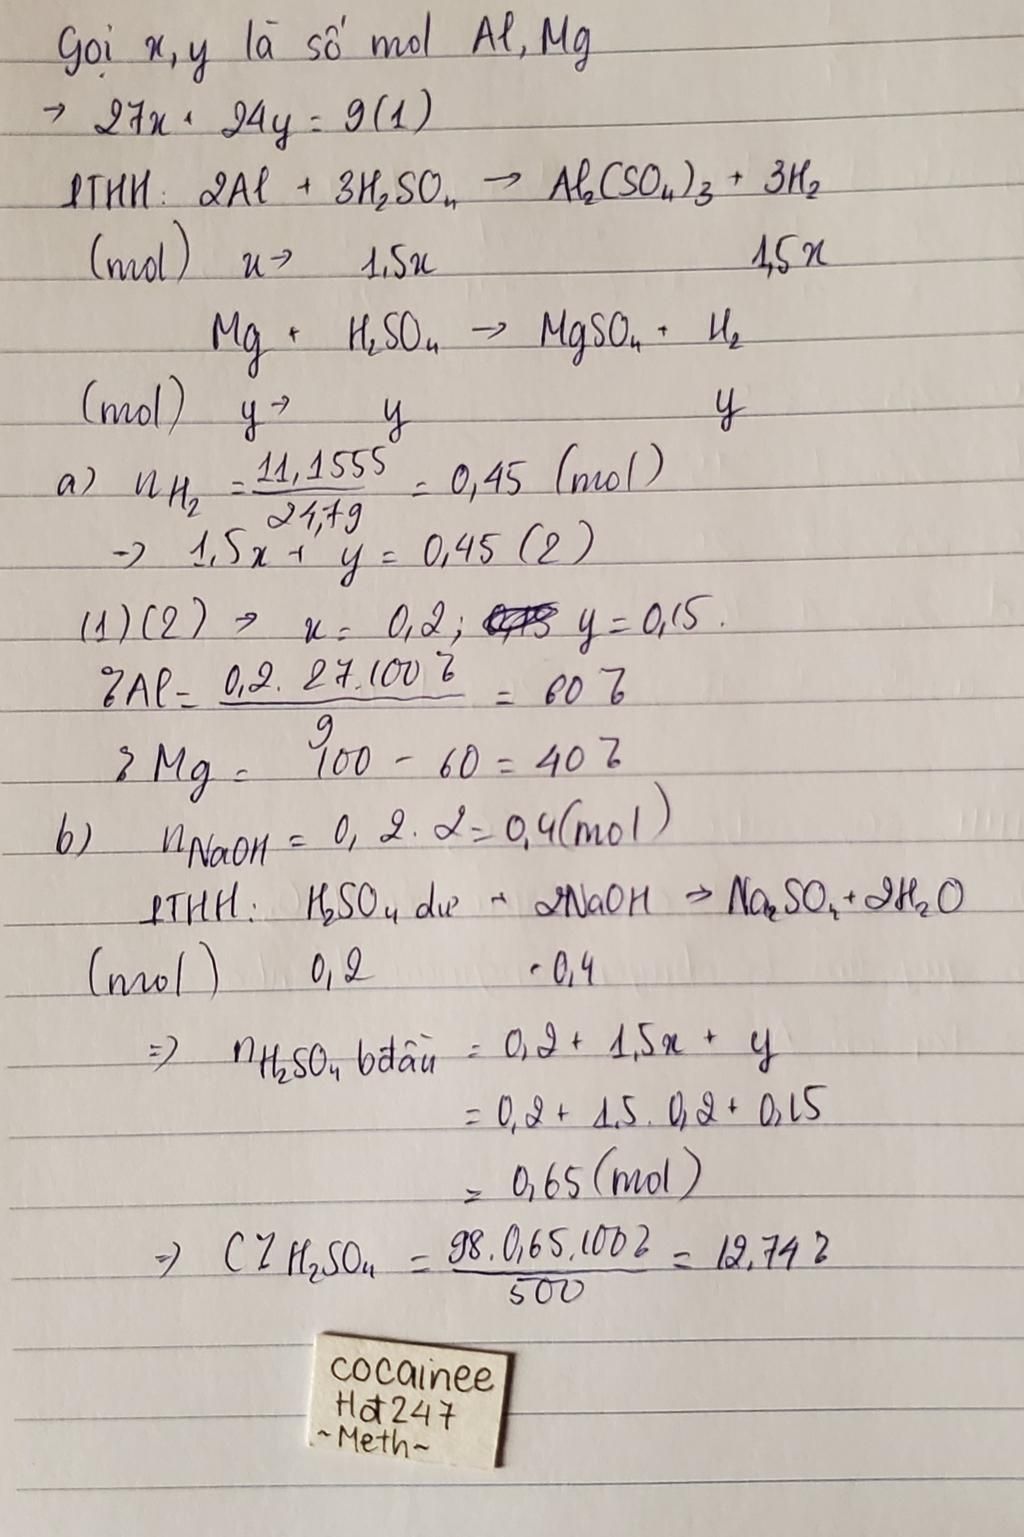 Gọi x, y là số mol Al, Mg
→ 27x + 24y = 9 (1)
PTHH: 2Al + 3H₂SO₄ → Al₂(SO₄)₃ + 3H₂
(mol) x → 1,5x 1,5x
Mg + H₂SO₄ → MgSO₄ + H₂
(mol) y → y y
a) nH₂ = 11,1555/24,79 = 0,45 (mol)
→ 1,5x + y = 0,45 (2)
(1)(2) → x = 0,2; y = 0,15.
%Al = 0,2.27.100%/9 = 60%
%Mg = 100 - 60 = 40%
b) nNaOH = 0,2.2 = 0,4 (mol)
PTHH: H₂SO₄ dư + 2NaOH → Na₂SO₄ + 2H₂O
(mol) 0,2 0,4
=> nH₂SO₄ bđầu = 0,2 + 1,5x + y
= 0,2 + 1,5.0,2 + 0,15
= 0,65 (mol)
=> C% H₂SO₄ = 98.0,65.100%/500 = 12,74%
cocainee
Hot247
~Meth~